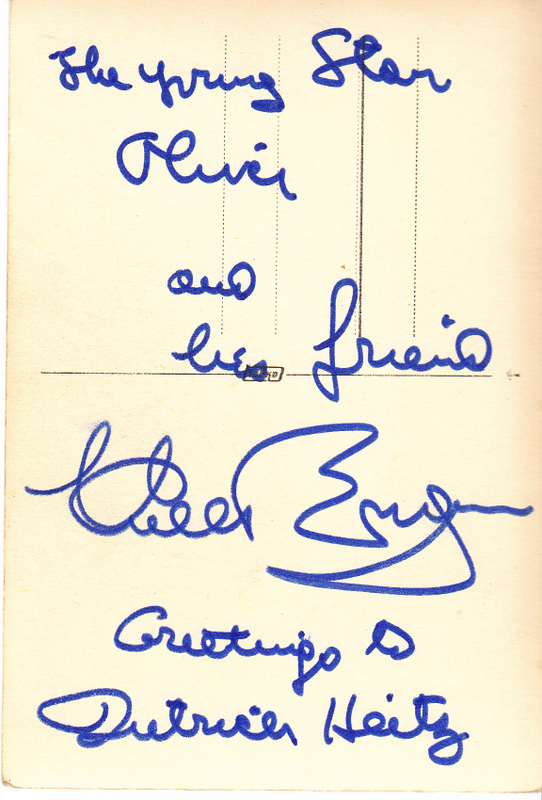 The young Star
Oliver
and
her friend
Greetings to
Dietrich Heitz